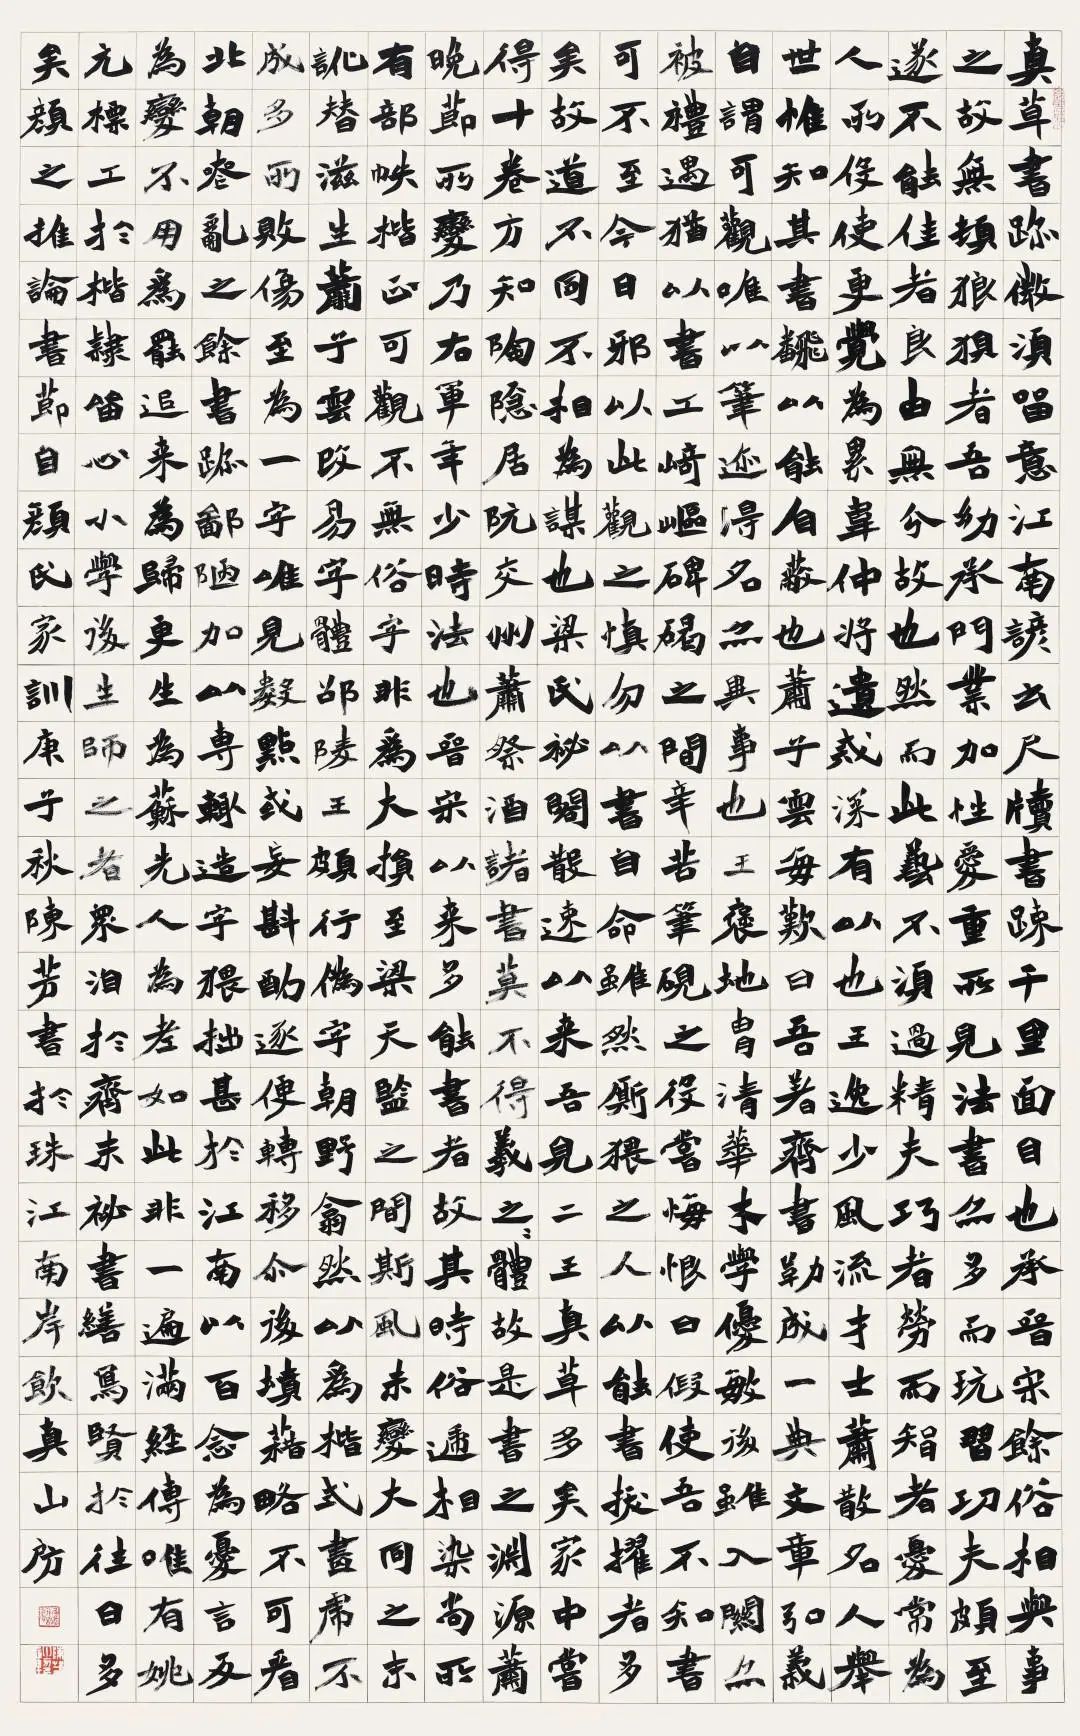 真草書跡微湏留意江南諺云尺牘書踈千里面目也承晋宋餘俗相與事
之故無頓狼狽者吾幼承門業加性愛重所見法書亦多而玩習功夫頗至
遂不能佳者良由無分故也然而此藝不湏過精夫巧者勞而智者憂常為
人所役使更覺為累韋仲將遺戒深有以也王逸少風流才士蕭散名人舉
世惟知其書翻以能自蔽也蕭子雲每歎曰吾著齊書勒成一典文章弘義
自謂可觀唯以筆迹得名亦異事也王褒地胄清華才學優敏後雖入關亦
被禮遇猶以書工崎嶇碑碣之間辛苦筆硯之役嘗悔恨曰假使吾不知書
可不至今日邪以此觀之慎勿以書自命雖然廝猥之人以能書拔擢者多
矣故道不同不相為謀也梁氏祕閣散速以来吾見二王真草多矣家中嘗
得十卷方知陶隱居阮交州蕭祭酒諸書莫不得羲之〻體故是書之淵源蕭
晚節所變乃右軍年少時法也晋宋以来多能書者故其時俗遞相染尚所
有部帙楷正可觀不無俗字非為大損至梁天監之間斯風未變大同之末
訛替滋生蕭子雲改易字體邵陵王頗行偽字朝野翕然以為楷式畫虎不
成多所敗傷至為一字唯見數點或妄斟酌逐便轉移尒後墳籍略不可看
北朝喪亂之餘書跡鄙陋加以專輒造字猥拙甚於江南以百念為憂言反
為變不用為罷追来為歸更生為蘇先人為老如此非一遍滿經傳唯有姚
元標工於楷隸留心小學後生師之者眾洎於齊末祕書繕寫賢於往日多
矣顏之推論書節自顏氏家訓庚子秋陳芳書於珠江南岸飲真山房